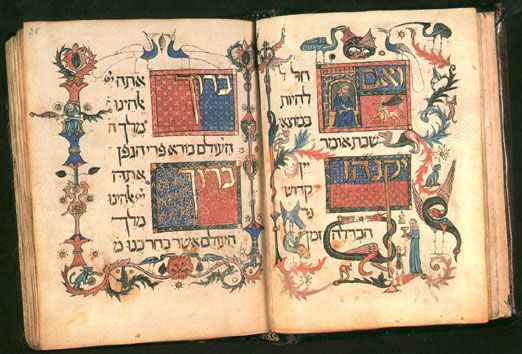 ואם
חל
להיות
במוצא
שבת אומר
יקנהז
יין
קדוש
נר
הבדלה זמן
ברוך
אתה יי
אלהינו
מלך
העולם בורא פרי הגפן
ברוך
אתה יי
אלהינו
מלך
העולם אשר בחר בנו מ